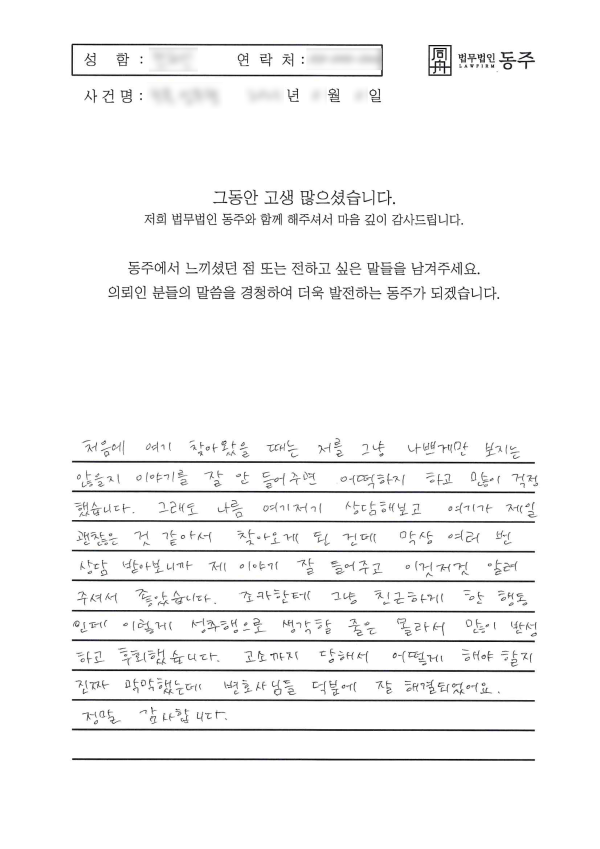 성 함 : 연 락 처 :
同舟 법무법인 동주
LAWFIRM
사건명 : 년 월 일
그동안 고생 많으셨습니다.
저희 법무법인 동주와 함께 해주셔서 마음 깊이 감사드립니다.
동주에서 느끼셨던 점 또는 전하고 싶은 말들을 남겨주세요.
의뢰인 분들의 말씀을 경청하여 더욱 발전하는 동주가 되겠습니다.
처음에 여기 찾아왔을 때는 저를 그냥 나쁘게만 보지는
않을지 이야기를 잘 안 들어주면 어떡하지 하고 많이 걱정
했습니다. 그래도 나름 여기저기 상담해보고 여기가 제일
괜찮은 것 같아서 찾아오게 된 건데 막상 여러 번
상담 받아보니까 제 이야기 잘 들어주고 이것저것 알려
주셔서 좋았습니다. 조카한테 그냥 친근하게 한 행동
인데 이렇게 성추행으로 생각할 줄은 몰라서 많이 반성
하고 후회했습니다. 고소까지 당해서 어떻게 해야 할지
진짜 막막했는데 변호사님들 덕분에 잘 해결되었어요.
정말 감사합니다.